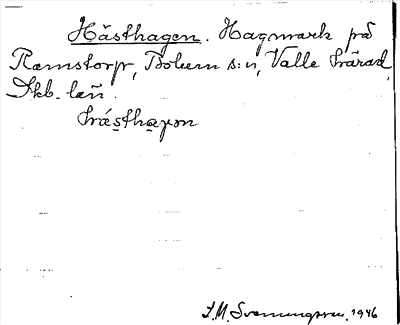 Hästhagen. Hagmark på
Ramstorp, Bolum s:n, Valle härad,
Skb. län.
hást̲ha̲gon
S. M. Svenungsson. 1946